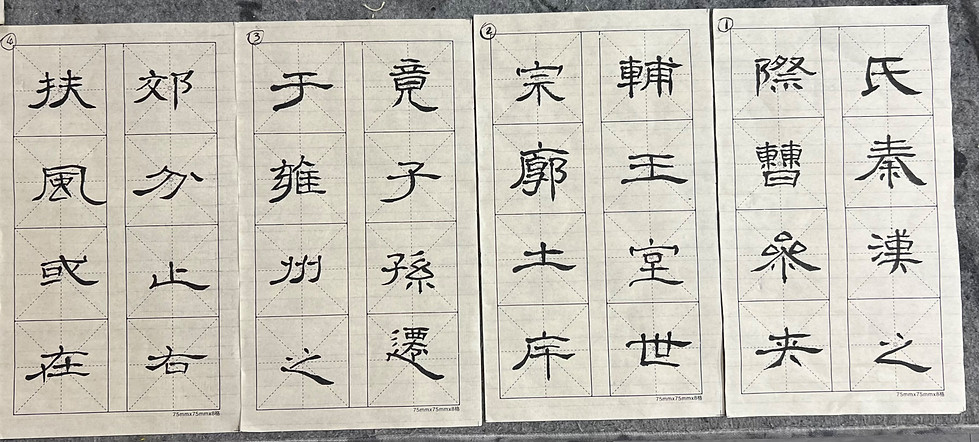 ①
氏秦漢之
際曹參夾
75mmx75mmx8格
②
輔王室世
宗廓土斥
75mmx75mmx8格
③
竟子孫遷
于雍州之
75mmx75mmx8格
④
郊分止右
扶風或在
75mmx75mmx8格